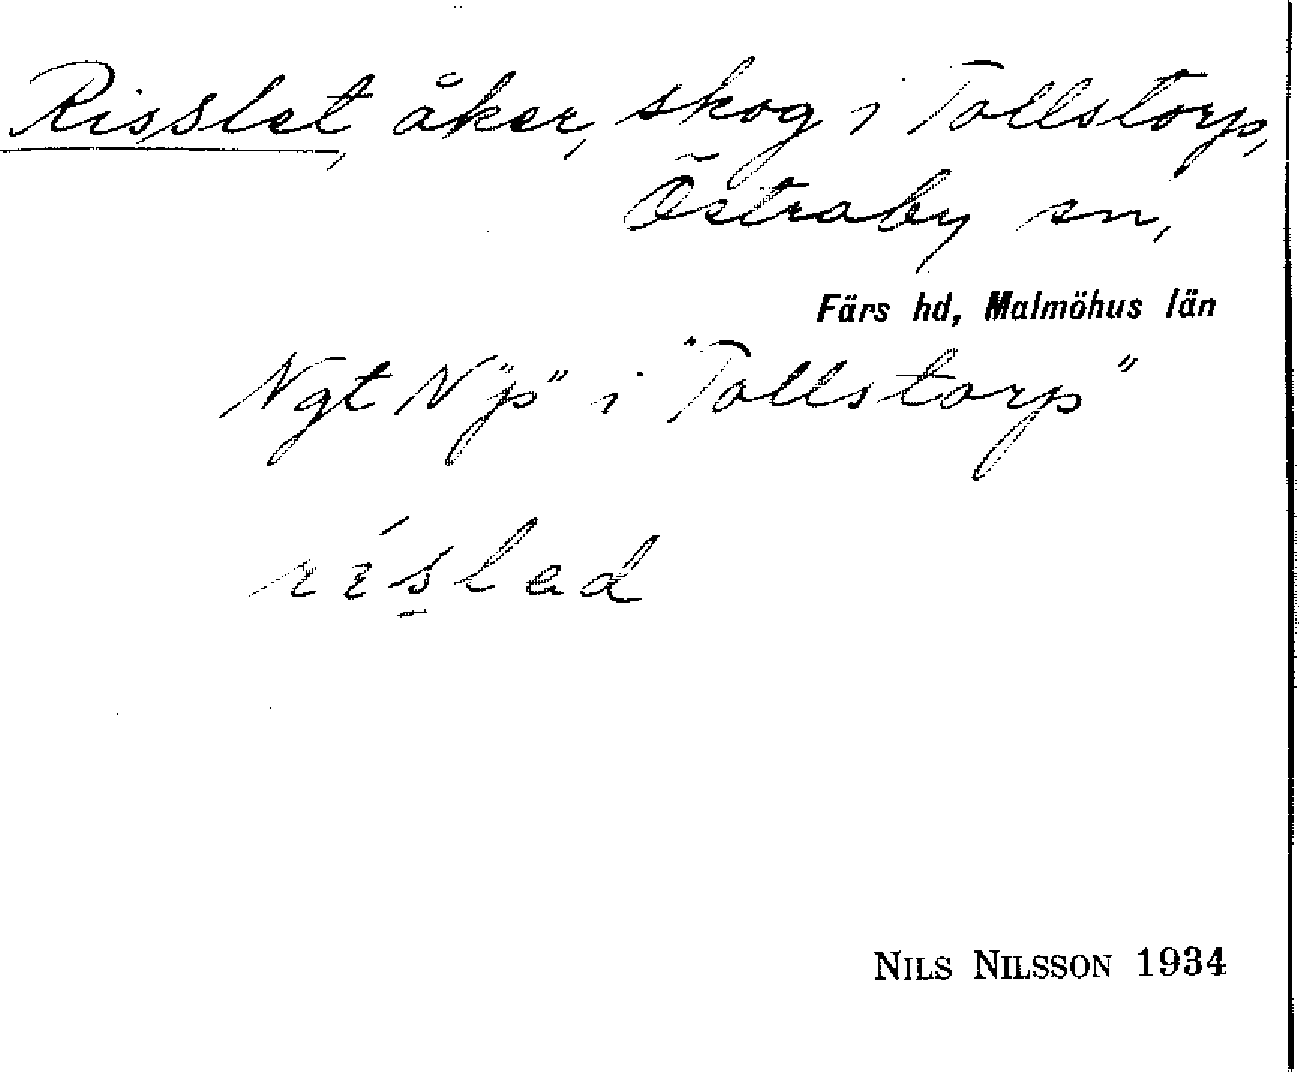 Risslet, åker, skog i Tollstorp,
Östraby sn,
Färs hd, Malmöhus län
Ngt N "js" i "Tollstorp"
ríslad
NILS NILSSON 1934